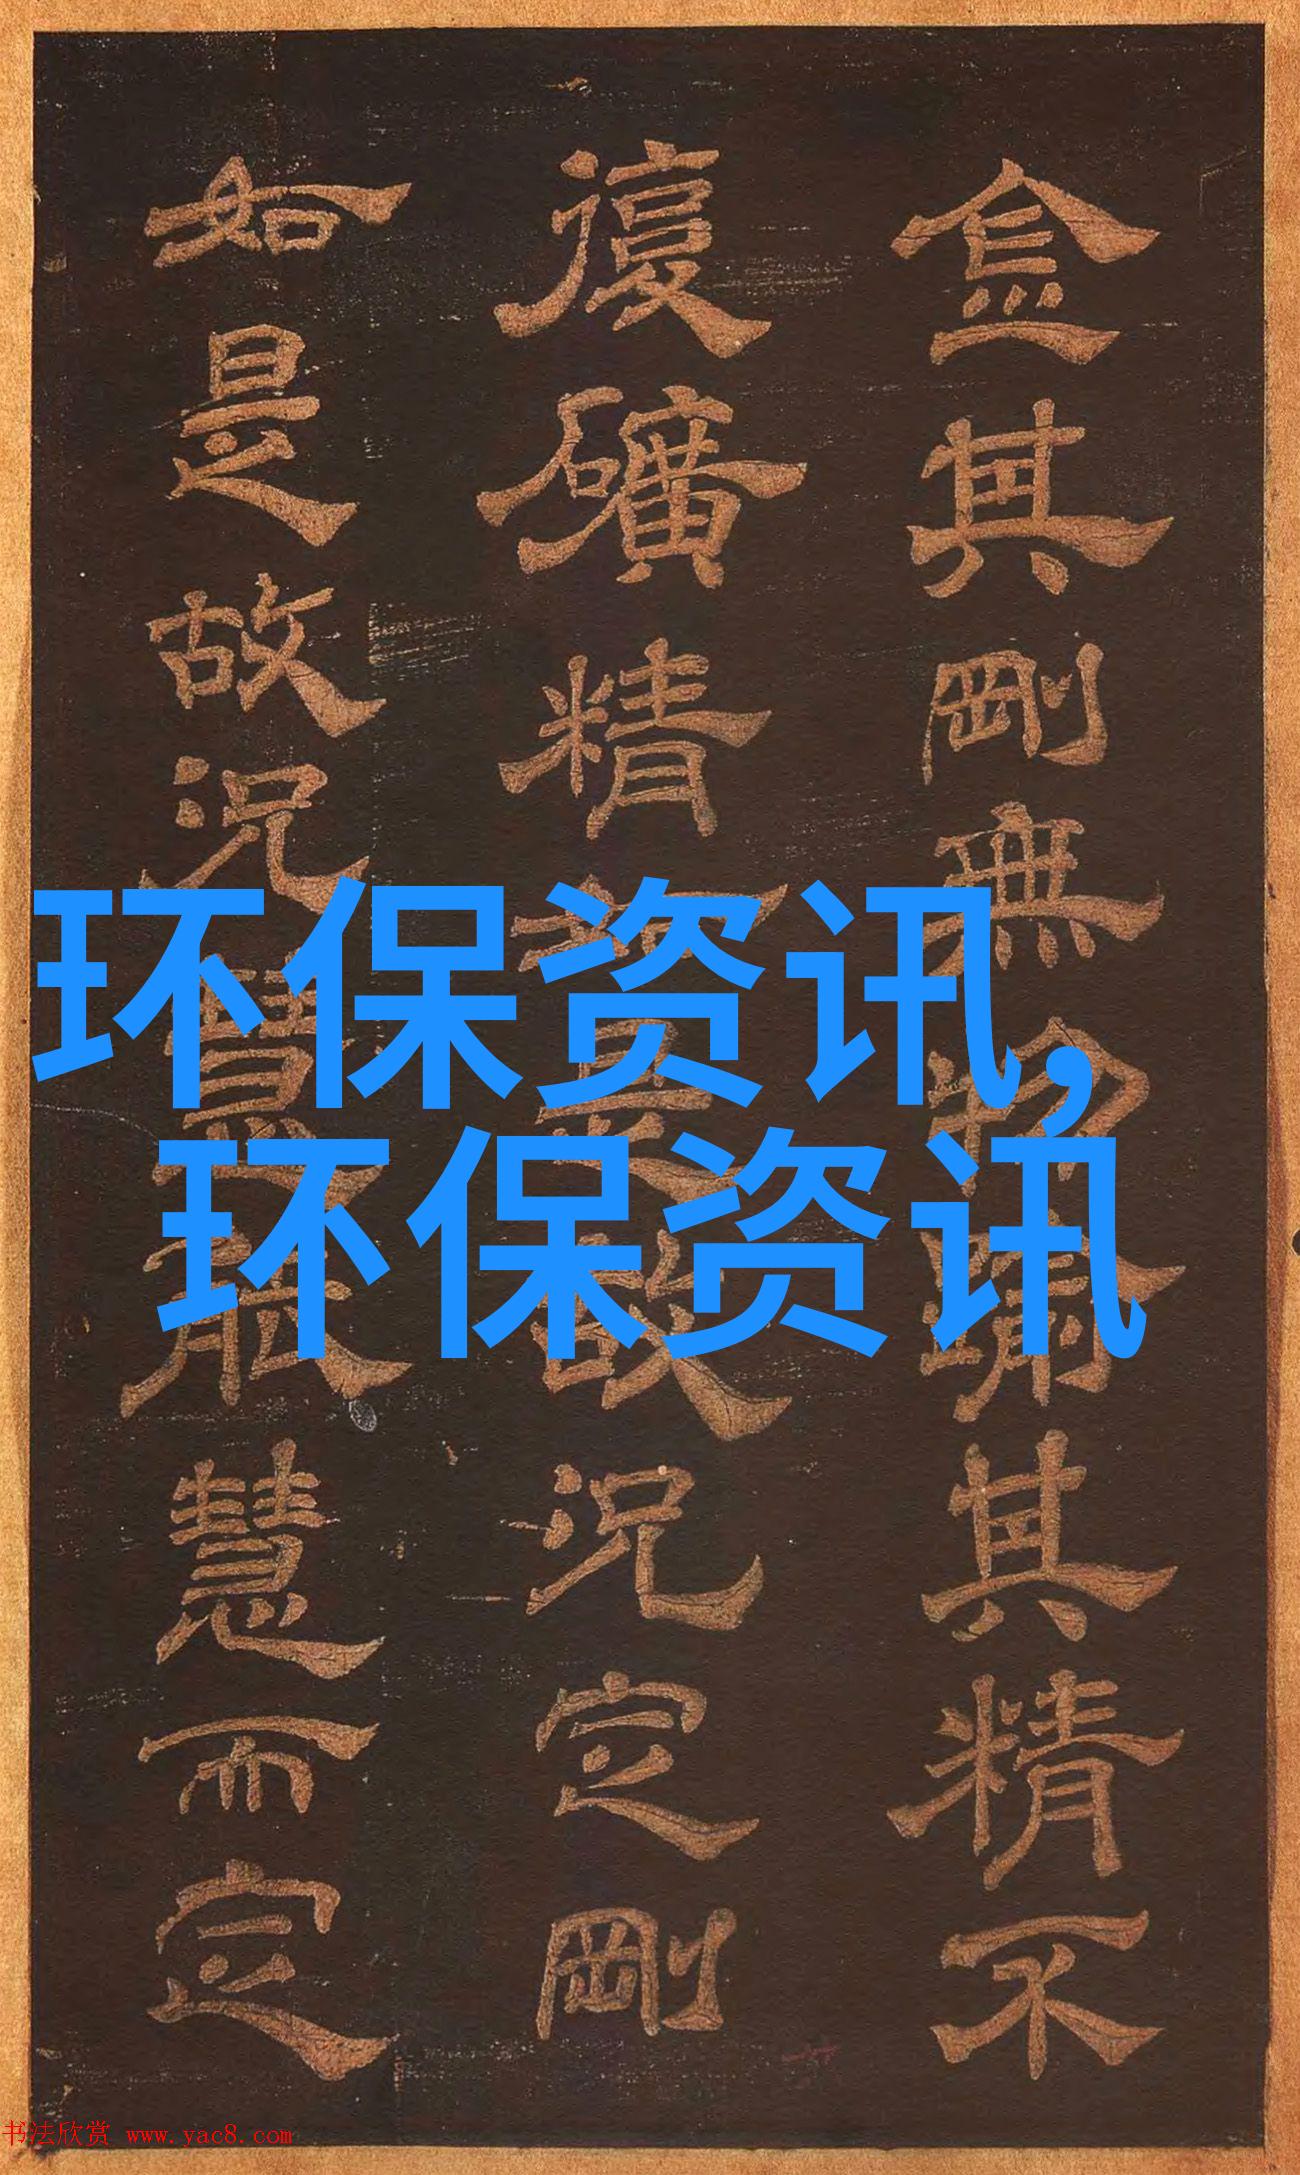 金其剛無物踰其精不
復礦精如是故況定剛
如是故況慧慧而定
环保资讯,
环保资讯
书法欣赏 www.yac8.com